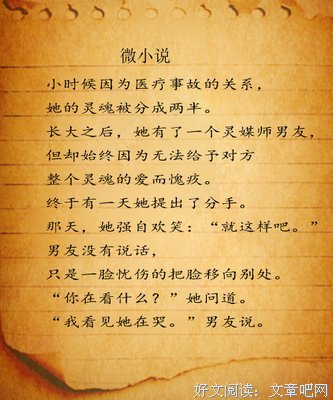 微小说
小时候因为医疗事故的关系，
她的灵魂被分成两半。
长大之后，她有了一个灵媒师男友，
但却始终因为无法给予对方
整个灵魂的爱而愧疚。
终于有一天她提出了分手。
那天，她强自欢笑：“就这样吧。”
男友没有说话，
只是一脸忧伤的把脸移向别处。
“你在看什么？”她问道。
“我看见她在哭。”男友说。
好文阅读：文章吧网